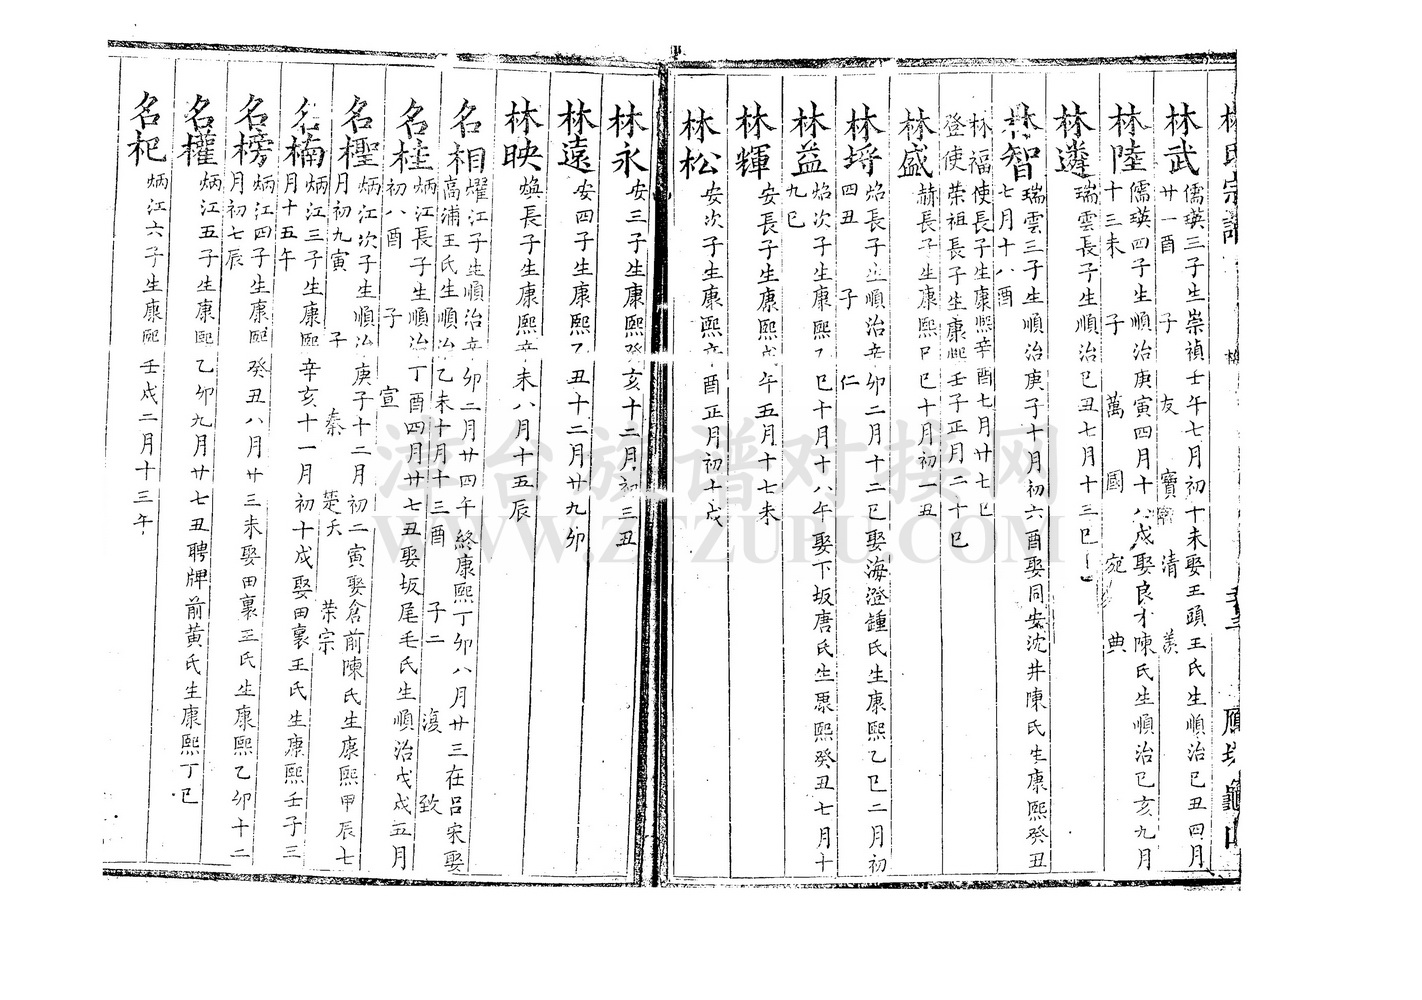 林武 儒瑛三子生崇禎壬午七月初十未娶王頭王氏生順治己丑四月
廿一酉 子 友 寶 清 義
林陸 儒瑛四子生順治庚寅四月十八戌娶良才陳氏生順治己亥九月
十三未 子 萬 國 宛 典
林遴 瑞雲長子生順治己丑七月十三巳
林智 瑞雲三子生順治庚子十月初六酉娶同安沈井陳氏生康熙癸丑
七月十八酉
林福 使長子生康熙辛酉七月廿七巳
登使 榮祖長子生康熙壬子正月二十巳
林盛 赫長子生康熙己巳十月初一丑
林埓 焰長子生順治辛卯二月十二巳娶海澄鍾氏生康熙乙巳二月初
四丑 子 仁
林益 焰次子生康熙乙巳十月十八午娶下坂唐氏生康熙癸丑七月十
九巳
林輝 安長子生康熙戊午五月十七未
林松 安次子生康熙辛酉正月初十戌
林永 安三子生康熙癸亥十二月初三丑
林遠 安四子生康熙乙丑十二月廿九卯
林映 煥長子生康熙辛未八月十五辰
名相 燿江子生順治辛卯二月廿四午終康熙丁卯八月廿三在呂宋娶
高浦王氏生順治乙未十月十三酉 子二 漢 致
名桂 炳江長子生順治丁酉四月廿七丑娶坂尾毛氏生順治戊戌五月
初八酉 子 宣
名檉 炳江次子生順治庚子十二月初二寅娶倉前陳氏生康熙甲辰七
月初九寅 子 秦 楚夭 榮宗
名楠 炳江三子生康熙辛亥十一月初十戌娶田裏王氏生康熙壬子三
月十五午
名榜 炳江四子生康熙癸丑八月廿三未娶田裏王氏生康熙乙卯十二
月初七辰
名權 炳江五子生康熙乙卯九月廿七丑聘牌前黃氏生康熙丁巳
名杞 炳江六子生康熙壬戌二月十三午
漳台族谱对接网
WWW.ZTZUPU.COM